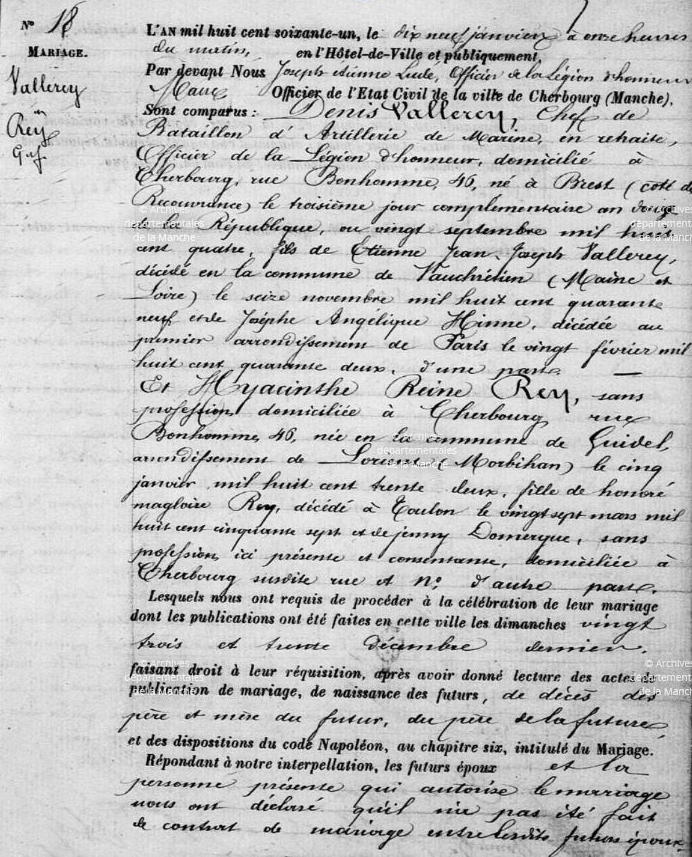 N° 18
MARIAGE.
Vallerey
et
Rey
L'AN mil huit cent soixante-un, le dix neuf janvier à onze heures
du matin, en l'Hôtel-de-Ville et publiquement,
Par devant Nous Joseph étienne Ludé, Officier de la Légion d'honneur
Maire Officier de l'Etat Civil de la ville de Cherbourg (Manche).
Sont comparus : Denis Vallerey, Chef de
Bataillon d'Artillerie de Marine, en retraite,
Officier de la Légion d'honneur, domicilié à
Cherbourg, rue Bonhomme, 46, né à Brest (coté de
Recouvrance) le troisième jour complementaire an douze
de la République, ou vingt septembre mil huit
cent quatre, fils de Etienne Jean Joseph Vallerey,
décédé en la commune de Vauchrétien (Maine et
Loire) le seize novembre mil huit cent quarante
neuf et de Josèphe Angélique Hinne, décédée au
premier arrondissement de Paris le vingt février mil
huit cent quarante deux, d'une part.
Et Hyacinthe Reine Rey, sans
profession, domiciliée à Cherbourg rue
Bonhomme, 46, née en la commune de Guidel,
arrondissement de Lorient (Morbihan) le cinq
janvier mil huit cent trente deux, fille de honoré
magloire Rey, décédé à Toulon le vingt sept mars mil
huit cent cinquante sept et de jenny Domergue, sans
profession, ici présente et consentante, domiciliée à
Cherbourg susdite rue et N°. d'autre part.
Lesquels nous ont requis de procéder à la célébration de leur mariage
dont les publications ont été faites en cette ville les dimanches vingt
trois et trente décembre dernier.
faisant droit à leur réquisition, après avoir donné lecture des actes de
publication de mariage, de naissance des futurs, de décès des
père et mère du futur, du père de la future,
et des dispositions du code Napoléon, au chapitre six, intitulé du Mariage.
Répondant à notre interpellation, les futurs époux et la
personne présente qui autorise le mariage
nous ont déclaré qu'il n'a pas été fait
de contrat de mariage entre lesdits futurs époux.
© Archives
départementales
de la Manche
© Archives
départementales
de la Manche
départementales
de la Manche
© Archives
départementales
de la Manche
© Archives
départementales
de la Manche